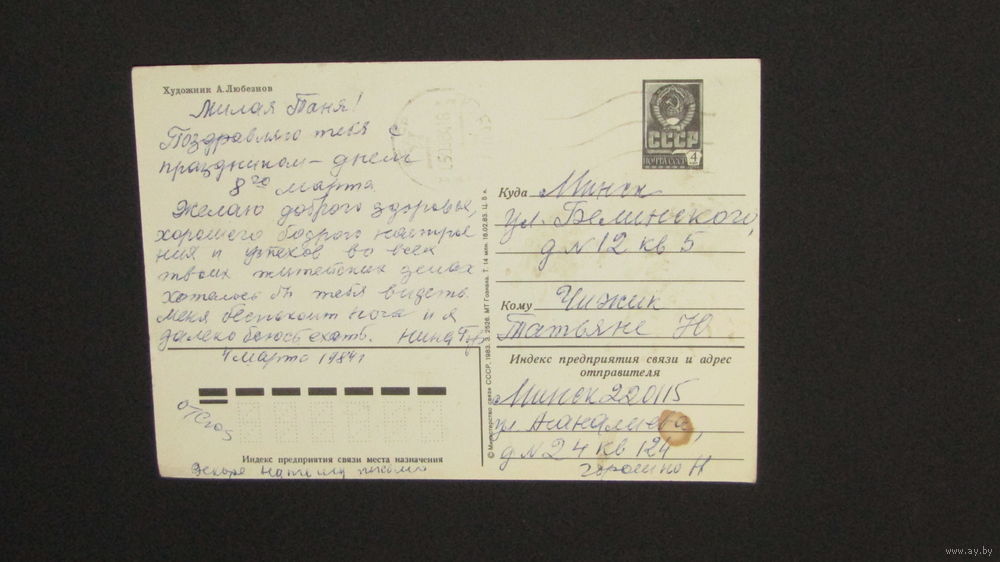 Художник А.Любезнов
Милая Таня!
Поздравляю тебя с
праздником – днем
8го марта
Желаю доброго здоровья,
хорошего бодрого настрое
ния и успехов во всех
твоих житейских делах
Хотелось бы тебя видеть.
Меня беспокоит нога и я
далеко боюсь ехать. Нина
4 марта 1984 г
Индекс предприятия связи места назначения
Вскоре напишу письмо
© Министерство связи СССР, 1983. З. 2526. МТ Гознака. Т. 14 млн. 18.02.83. Ц. 5 к.
СССР
ПОЧТА СССР
4
Куда Минск
ул. Белинского,
д N 12 кв 5
Кому Чижик
Татьяне Н.
Индекс предприятия связи и адрес
отправителя
Минск 220115
ул.
д N 24 кв 124
Н
www.ay.by